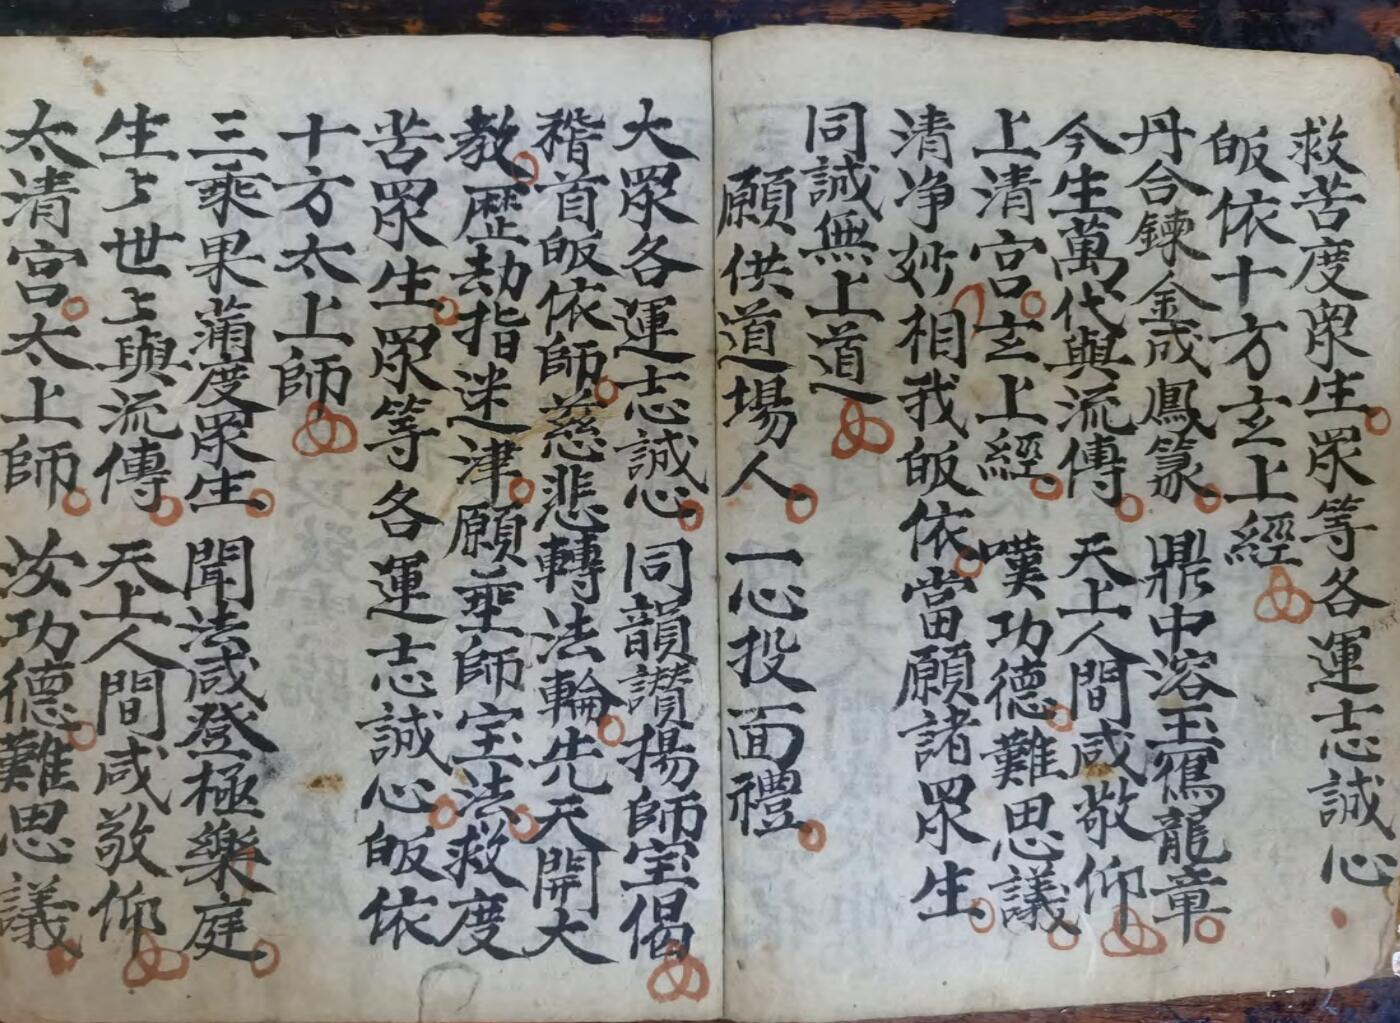 救苦度眾生眾等各運志誠心
皈依十方玄上經
丹合鍊金成鳳篆鼎中溶玉寫龍章
今生萬代與流傳天上人間咸敬仰
上清宮玄上經嘆功德難思議
清净妙相我皈依當願諸眾生
同誠無上道
願供道場人一心投面禮
大眾各運志誠心同韻讃揚師宝偈
稽首皈依師慈悲轉法輪先天開大
教歷劫指迷津願垂師宝法救度
苦眾生眾等各運志誠心皈依
十方太上師
三乘果蒲度眾生聞法咸登極樂庭
生々世上與流傳天上人間咸敬仰
太清宮太上師汝功德難思議